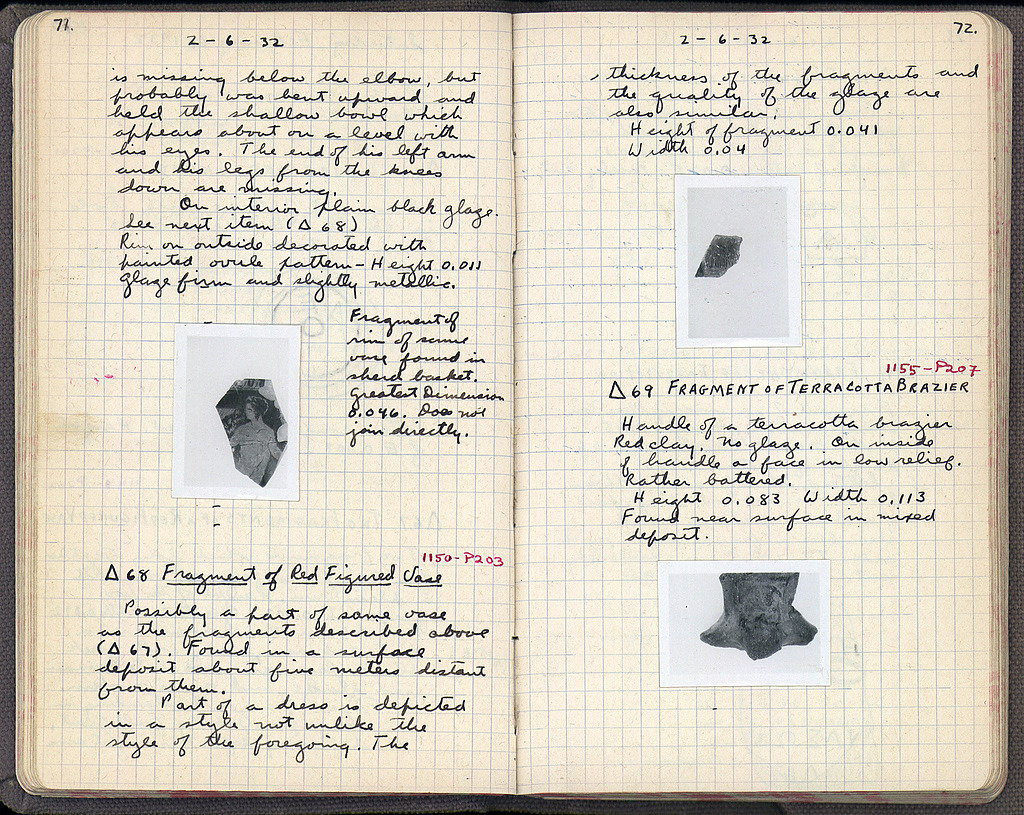 71.
2-6-32
is missing below the elbow, but
probably was bent upward and
held the shallow bowl which
appears about on a level with
his eyes. The end of his left arm
and his legs from the knees
down are missing.
On interior plain black glaze.
See next item (Δ 68)
Rim on outside decorated with
painted ovule pattern - Height 0.011
Glaze firm and slightly metallic.
Fragment of
rim of same
vase found in
sherd basket.
Greatest Dimension
0.046. Does not
join directly.
1150-P203
Δ 68 Fragment of Red Figured Vase
Possibly a part of same vase
as the fragments described above
(Δ 67). Found in a surface
deposit about five meters distant
from them.
Part of a dress is depicted
in a style not unlike the
style of the foregoing. The
72.
2-6-32
thickness of the fragments and
the quality of the glaze are
also similar.
Height of fragment 0.041
Width 0.04
1155-P207
Δ 69 FRAGMENT OF TERRACOTTA BRAZIER
Handle of a terracotta brazier
Red clay. No glaze. On inside
of handle a face in low relief.
Rather battered.
Height 0.083 Width 0.113
Found near surface in mixed
deposit.